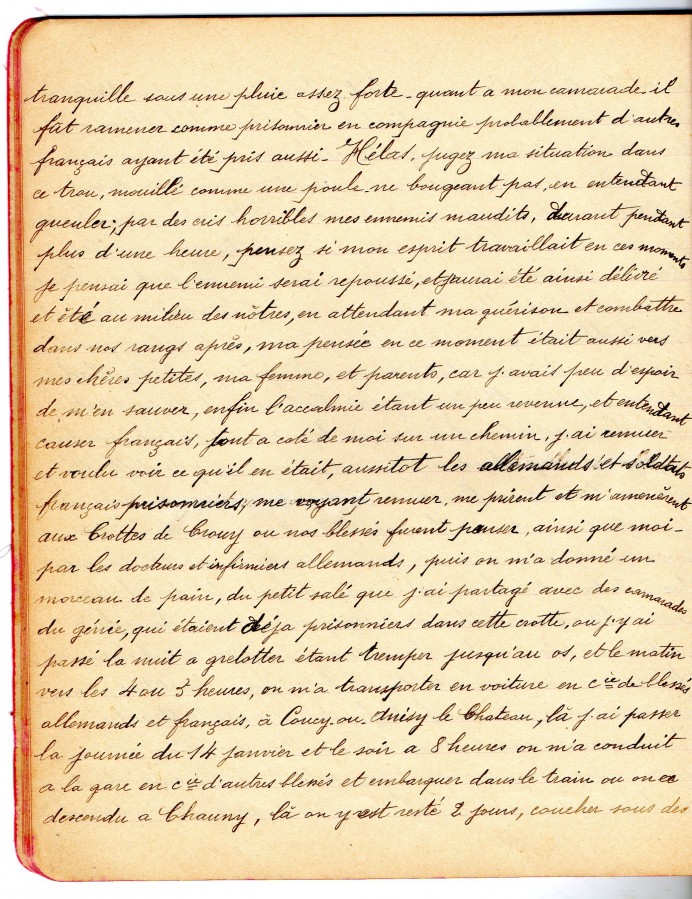 tranquille sous une pluie assez forte - quant a mon camarade il
fût ramener comme prisonnier en compagnie probablement d'autres
français ayant été pris aussi - Hélas, jugez ma situation dans
ce trou, mouillé comme une poule - ne bougeant pas, en entendant
gueuler, par des cris horribles mes ennemis maudits, durant pendant
plus d'une heure, pensez si mon esprit travaillait en ces moments
je pensai que l'ennemi serai repoussé, et j'aurai été ainsi délivré
et été au milieu des nôtres, en attendant ma guérison et combattre
dans nos rangs après, ma pensée en ce moment était aussi vers
mes chères petites, ma femme, et parents, car j'avais peu d'espoir
de m'en sauver, enfin l'accalmie étant un peu revenue, et entendant
causer français, tout a coté de moi sur un chemin, j'ai remuer
et voulu voir ce qu'il en était, aussitot les allemands et soldats
français prisonniers, me voyant remuer, me prirent et m'amenèrent
aux Crottes de Crouy ou nos blessés furent penser, ainsi que moi -
par les docteurs et infirmiers allemands, puis on m'a donné un
morceau de pain, du petit salé que j'ai partagé avec des camarades
du génie, qui étaient déja prisonniers dans cette crotte, ou j'y ai
passé la nuit a grelotter étant tremper jusqu'au os, et le matin
vers les 4 ou 5 heures, on m'a transporter en voiture en cie de blessés
allemands et français, à Coucy-ou-Anisy le Chateau, là j'ai passer
la journée du 14 janvier et le soir a 8 heures on m'a conduit
a la gare en cie d'autres blessés et embarquer dans le train ou on
descendu a Chauny, là on y est resté 2 jours, coucher sous des